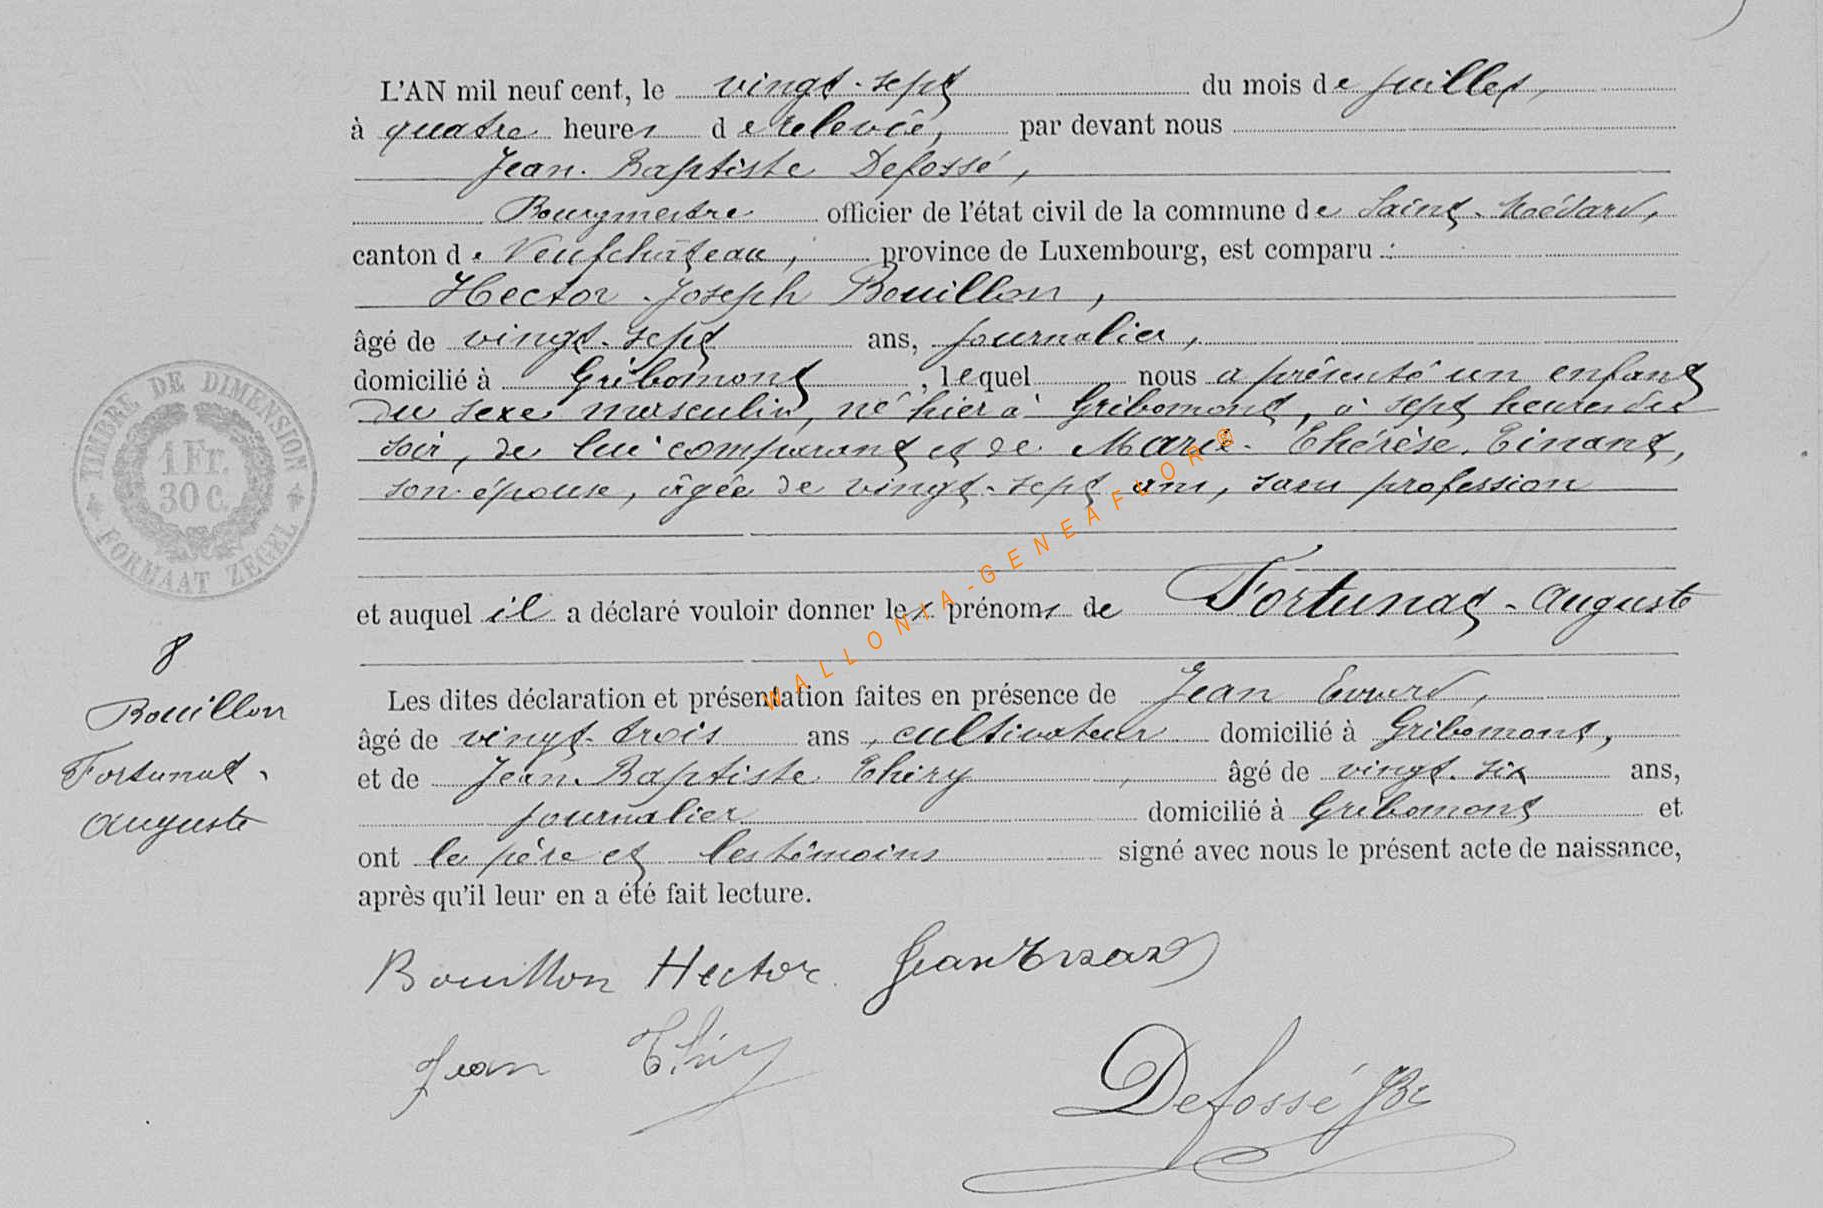 L'AN mil neuf cent, le vingt-sept du mois de juillet,
à quatre heures de relevée, par devant nous
Jean-Baptiste Defossé,
Bourgmestre officier de l'état civil de la commune de Saint-Médard,
canton de Neufchâteau, province de Luxembourg, est comparu :
Hector-Joseph Bouillon,
âgé de vingt-sept ans, journalier,
domicilié à Gribomont, lequel nous a présenté un enfant
du sexe masculin, né hier à Gribomont, à sept heures du
soir, de lui comparant et de Marie-Thérèse Tinant,
son épouse, âgée de vingt-sept ans, sans profession
et auquel il a déclaré vouloir donner les prénoms de Fortunat-Auguste
Les dites déclaration et présentation faites en présence de Jean Evrard,
âgé de vingt-trois ans, cultivateur domicilié à Gribomont,
et de Jean-Baptiste Thiry, âgé de vingt-six ans,
journalier domicilié à Gribomont et
ont le père et les témoins signé avec nous le présent acte de naissance,
après qu'il leur en a été fait lecture.
Bouillon Hector. Jean Evrard
Jean Thiry
Defossé JBte
TIMBRE DE DIMENSION
1 Fr.
30 C.
FORMAAT ZEGEL
8
Bouillon
Fortunat-
Auguste
WALLONIA-GENEAFLOR©